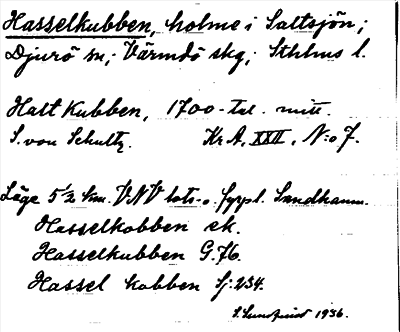 Hasselkubben, holme i Saltsjön;
Djurö sn; Värmdö skg; Sthlms l.
Hast Kubben, 1700-tal. mitt.
S. von Schultz. Kr A, XXII, N:o 7.
Läge 5 1/2 km. VNV lots- o. fyrpl. Sandhamn.
Hasselkobben ek.
Hasselkubben G.76.
Hassel kobben Sj:234.
1936.